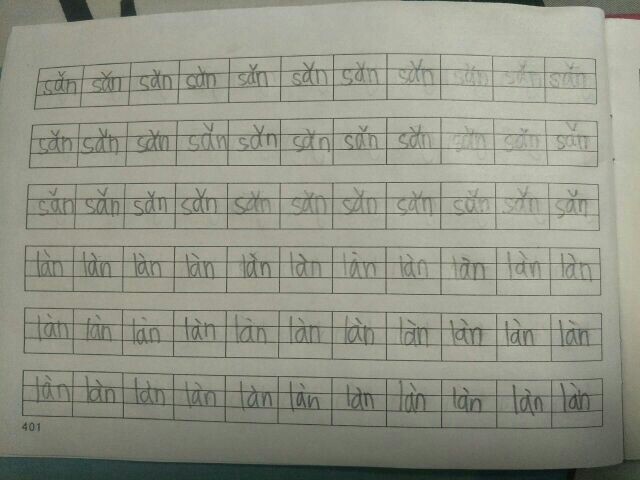 sǎn sǎn sǎn sǎn sǎn sǎn sǎn sǎn sǎn sǎn sǎn
sǎn sǎn sǎn sǎn sǎn sǎn sǎn sǎn sǎn sǎn sǎn
sǎn sǎn sǎn sǎn sǎn sǎn sǎn sǎn sǎn sǎn sǎn
làn làn làn làn làn làn làn làn làn làn làn
làn làn làn làn làn làn làn làn làn làn làn
làn làn làn làn làn làn làn làn làn làn làn
401